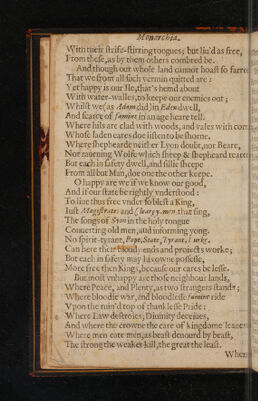 Monarchia.
With their strife-stirring tongues; but liu'd as free,
From these, as by them others combred be.
And though our whole land cannot boast so farre
That we from all such vermin quitted are:
Yet happy is our Ile, that's hemd about
With water-walles, to keepe our enemies out;
Whilst we (as Adam did) in Eden dwell,
And scarce of famine in an age heare tell.
Where hils are clad with woods, and vales with corn
Whose laden eares doe listen to be shorne.
Where shepheards neither Lyon doubt, nor Beare,
Nor rauening Wolfe which sheep & shepheard teare
But each in safety dwell, and sillie sheepe
From all but Man, doe one the other keepe.
O happy are we if we know our good,
And if our state be rightly vnderstood:
To liue thus free vnder so blest a King,
Iust Magistrats and Cleargy-men that sing,
The songs of Syon in the holy tongue
Conuerting old men, and informing yong.
No spirit-tyrant, Pope, State, Tyrant, Turke,
Can here their bloudie ends and proiects worke;
But each in safety may his owne possesse,
More free then Kings, because our cares be lesse.
But most vnhappy are those neighbour lands,
Where Peace, and Plenty, as two strangers stands;
Where bloodie war, and bloodlesse famine ride
Vpon the ruin'd top of thanklesse Pride:
Where Law destroies, Diuinity deceiues,
And where the crowne the care of kingdome leaues
Where men eate men, as beast denourd by beast,
The strong the weaker kill, the great the least.
Where